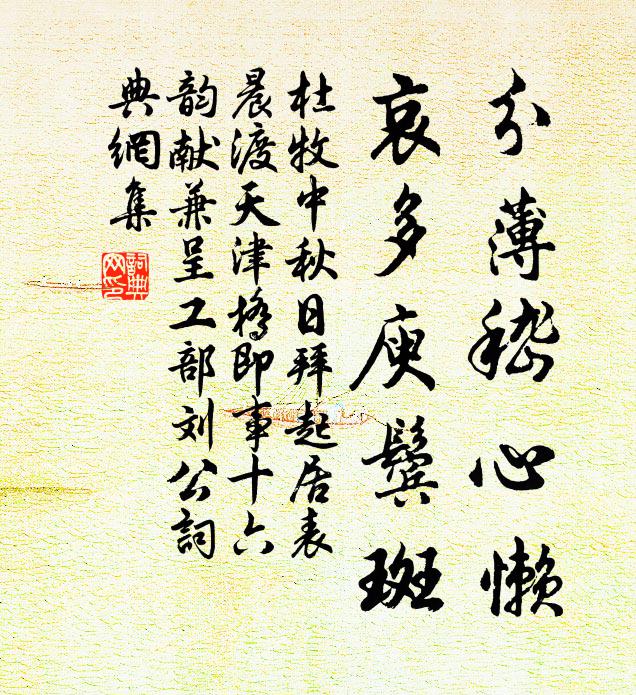 分薄嵇心懒
哀多庾鬓斑
杜牧中秋日拜起居表
晨渡天津桥即事十六
韵献兼呈工部刘公詞
典網集
詞典
网印